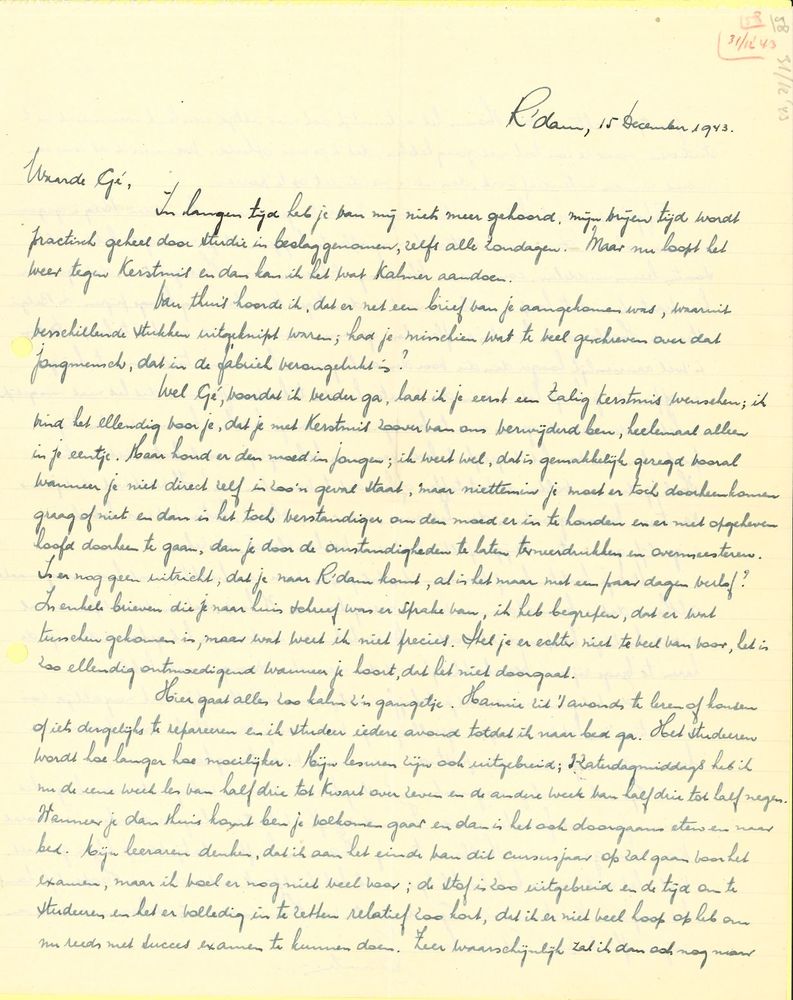 58
31/12 43
58
31/12 '43
R'dam, 15 December 1943.
Waarde Gé,
In langen tijd heb je van mij niets meer gehoord, mijn vrijen tijd wordt
practisch geheel door studie in beslaggenomen, zelfs alle Zondagen. Maar nu loopt het
weer tegen Kerstmis en dan kan ik het wat Kalmer aandoen.
Van thuis hoorde ik, dat er net een brief van je aangekomen was, waaruit
verschillende stukken uitgeknipt waren; had je misschien wat te veel geschreven over dat
jongmensch, dat in de fabriek verongelukt is?
Wel Gé, voordat ik verder ga, laat ik je eerst een Zalig Kerstmis wenschen; ik
vind het ellendig voor je, dat je met Kerstmis zoover van ons verwijderd ben, heelemaal alleen
in je eentje. Maar houd er den moed in jongen; ik weet wel, dat is gemakkelijk gezegd vooral
wanneer je niet direct zelf in zoo'n geval staat, maar niettemin je moet er toch doorheenkomen
graag of niet en dan is het toch verstandiger om den moed er in te houden en er met opgeheven
hoofd doorheen te gaan, dan je door de omstandigheden te laten terneerdrukken en overmeesteren.
Is er nog geen uitzicht, dat je naar R'dam komt, al is het maar met een paar dagen verlof?
In enkele brieven die je naar huis schreef was er sprake van, ik heb begrepen, dat er wat
tusschen gekomen is, maar wat weet ik niet precies. Stel je er echter niet te veel van voor, het is
zoo ellendig ontmoedigend wanneer je hoort, dat het niet doorgaat.
Hier gaat alles zoo kalm z'n gangetje. Hannie zit 's avonds te leren of kousen
of iets dergelijks te repareeren en ik studeer iedere avond totdat ik naar bed ga. Het studeeren
wordt hoe langer hoe moeilijker. Mijn lesuren zijn ook uitgebreid; Zaterdagmiddags heb ik
nu de eene week les van half drie tot kwart over zeven en de andere week van half drie tot half negen.
Wanneer je dan thuis komt ben je volkomen gaar en dan is het ook doorgaans eten en naar
bed. Mijn leeraren denken, dat ik aan het einde van dit cursusjaar op zal gaan voor het
examen, maar ik voel er nog niet veel voor; de stof is zoo uitgebreid en de tijd om te
studeeren en het er volledig in te zetten relatief zoo kort, dat ik er niet veel hoop op heb om
nu reeds met succes examen te kunnen doen. Zeer waarschijnlijk zal ik dan ook nog maar